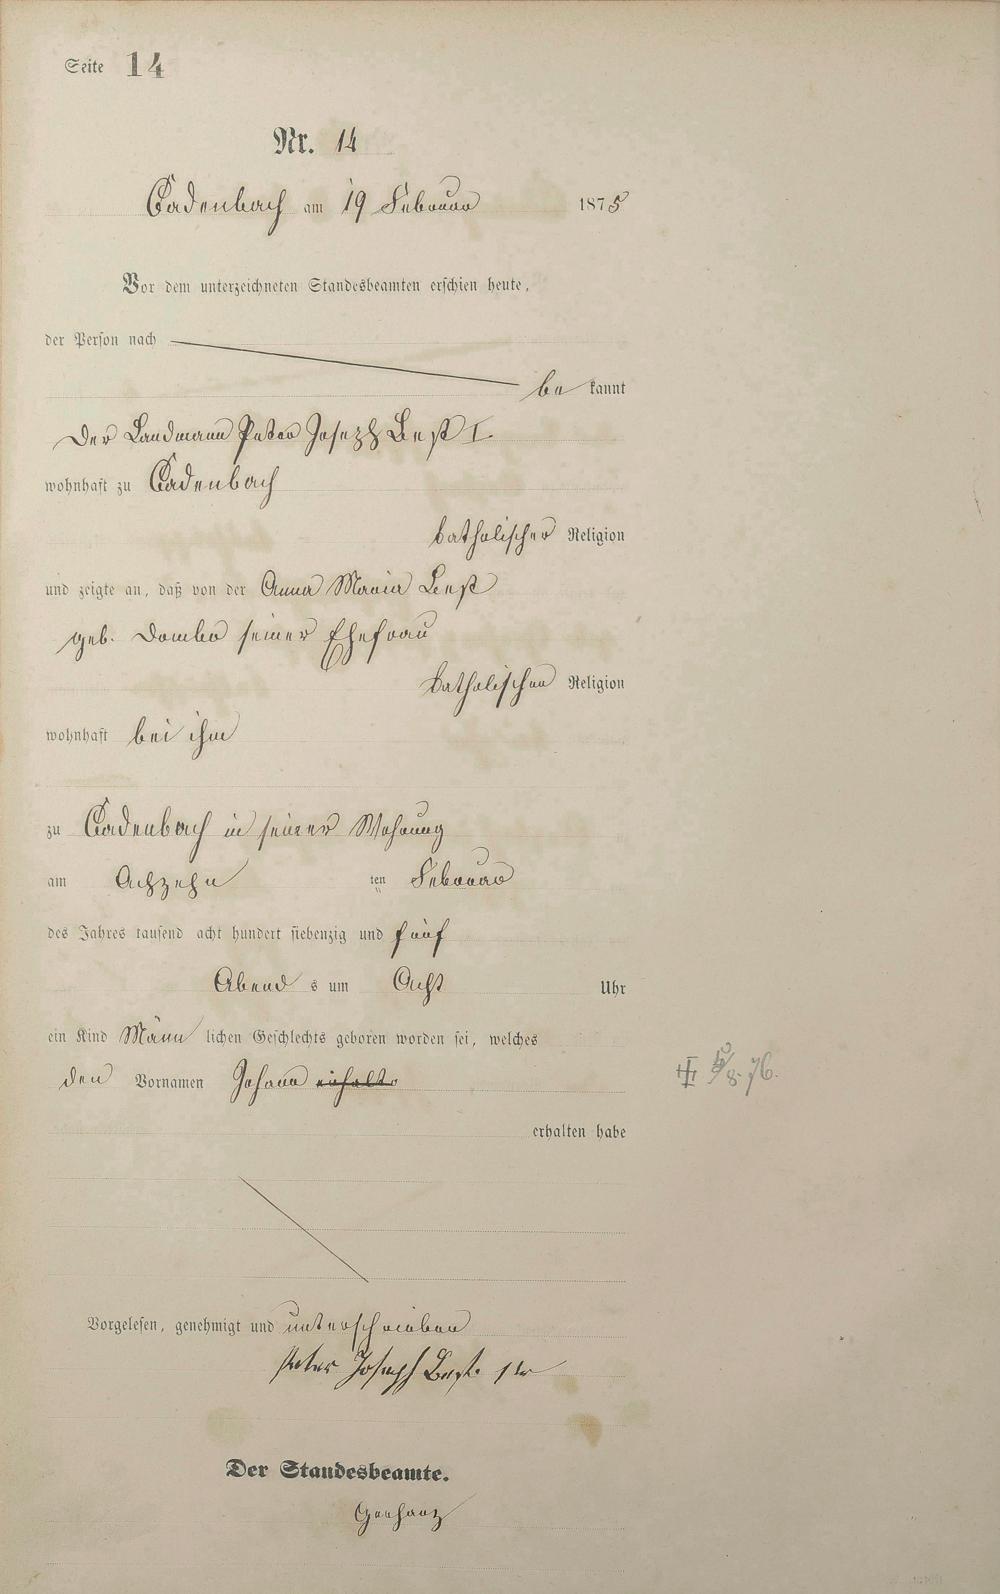 Seite 14
Nr. 14
Cadenbach am 19 Februar 1875
Vor dem unterzeichneten Standesbeamten erschien heute,
der Person nach
be kannt
der Landmann Peter Joseph Best I.
wohnhaft zu Cadenbach
katholischer Religion
und zeigte an, daß von der Anna Maria Best
geb. Dombo seiner Ehefrau
katholischer Religion
wohnhaft bei ihm
zu Cadenbach in seiner Wohnung
am Achzehn ten Februar
des Jahres tausend acht hundert siebenzig und fünf
Abend s um Acht Uhr
ein Kind Männ lichen Geschlechts geboren worden sei, welches
den Vornamen Johann
8. 76.
erhalten habe
Vorgelesen, genehmigt und unterschrieben
Peter Joseph Best 1ter
Der Standesbeamte.
Gerharz